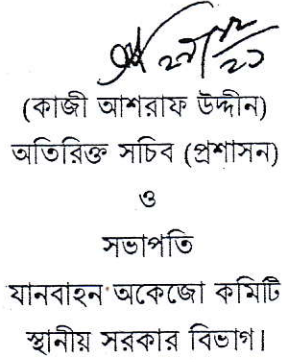 (কাজী আশরাফ উদ্দীন)
অতিরিক্ত সচিব (প্রশাসন)
ও
সভাপতি
যানবাহন অকেজো কমিটি
স্থানীয় সরকার বিভাগ।